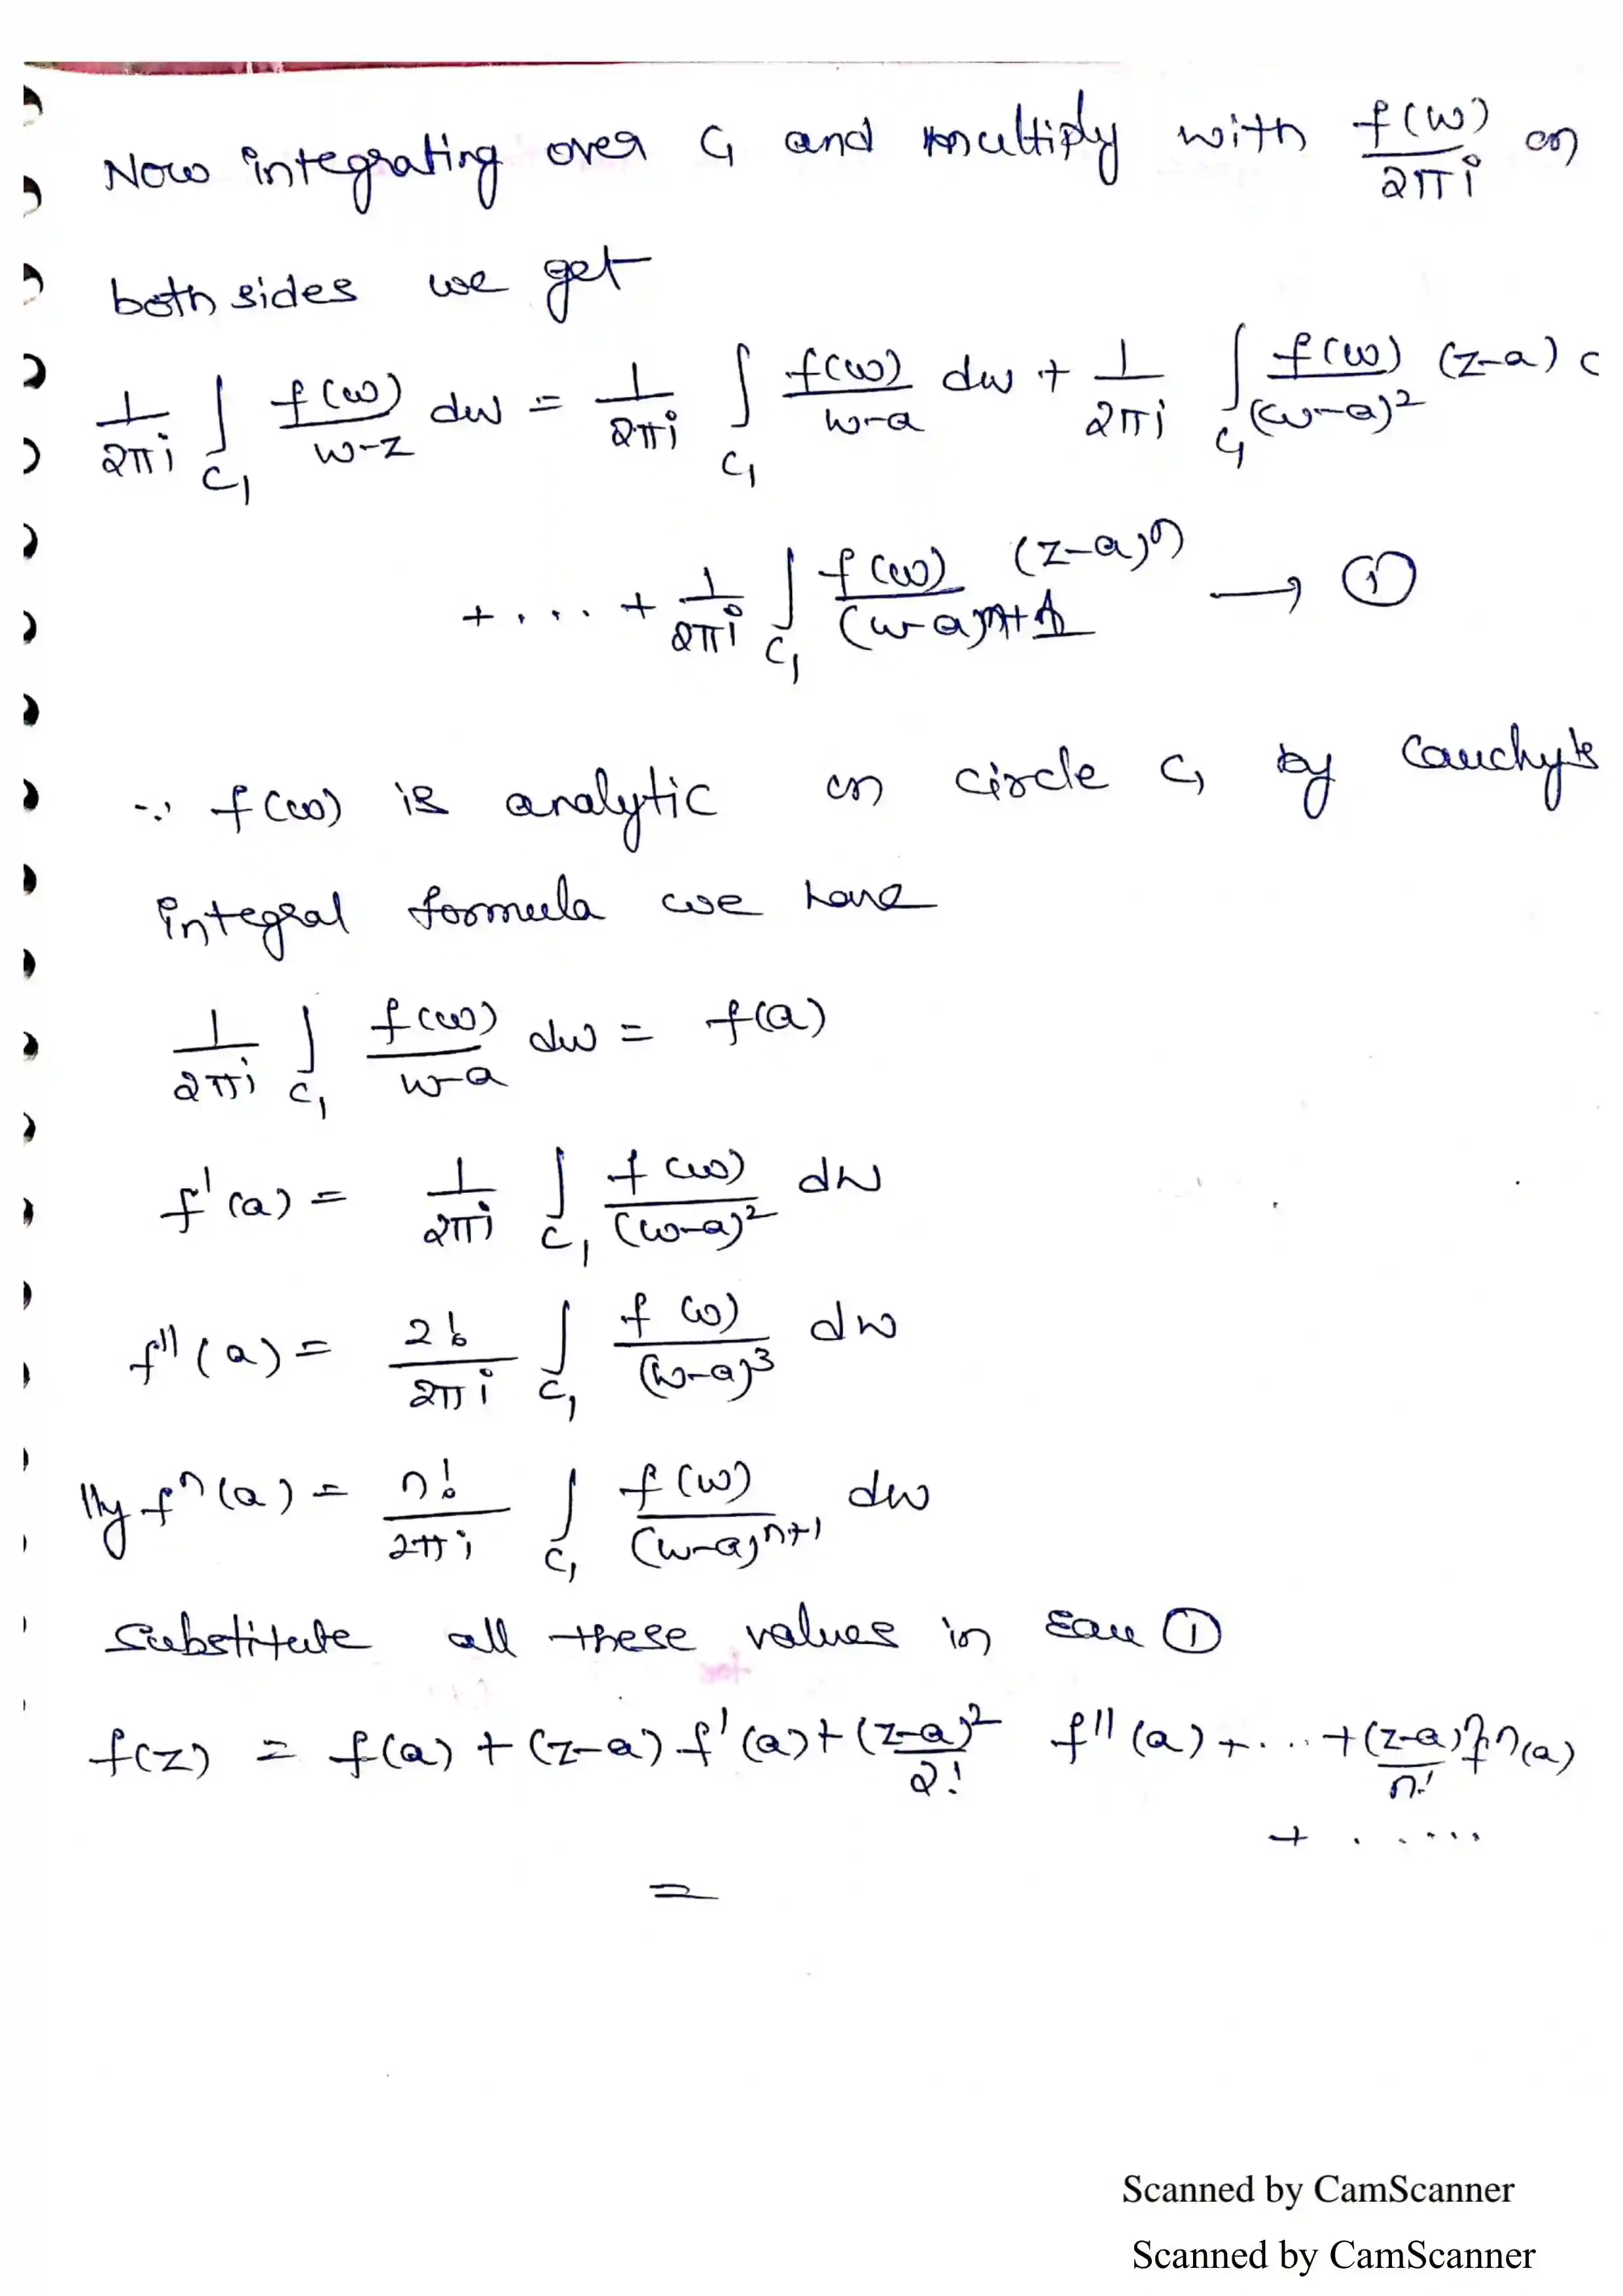 Now integrating over C₁ and multiply with f(w)/2πi on
both sides we get
1/2πi ∫_C₁ f(w)/w-z dw = 1/2πi ∫_C₁ f(w)/w-a dw + 1/2πi ∫_C₁ f(w)/(w-a)² (z-a)
+ .... + 1/2πi ∫_C₁ f(w)/(w-a)ⁿ⁺¹ (z-a)ⁿ → ①
∵ f(w) is analytic on circle C₁ by Cauchy's
integral formula we have
1/2πi ∫_C₁ f(w)/w-a dw = f(a)
f'(a) = 1/2πi ∫_C₁ f(w)/(w-a)² dw
f''(a) = 2!/2πi ∫_C₁ f(w)/(w-a)³ dw
lly fⁿ(a) = n!/2πi ∫_C₁ f(w)/(w-a)ⁿ⁺¹ dw
Substitute all these values in Equ ①
f(z) = f(a) + (z-a) f'(a) + (z-a)²/2! f''(a) + ... + (z-a)ⁿ/n! fⁿ(a)
+ ......
=
Scanned by CamScanner
Scanned by CamScanner